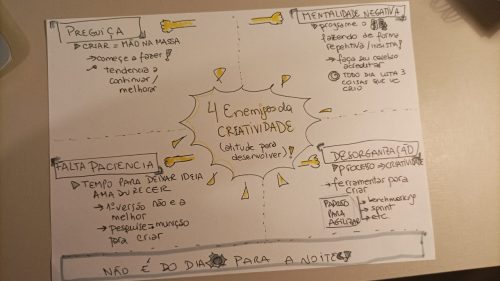 PREGUIÇA
CRIAR = MÃO NA MASSA
→ começe a fazer!
tendencia a
continuar/
melhorar
MENTALIDADE NEGATIVA
programe o
fazendo de forma
repetitiva/
→ faça seu cerebro
acreditar
TODO DIA LISTA 3
COISAS QUE VC
CRIO
4 Enemigos da
CREATIVIDADE
(atitude para
desenvolver)!
FALTA PACIENCIA
TEMPO PARA DEIXAR IDEIA
AMADURECER
→ 1ª versão não é a
melhor
→ pesquise = munição
para criar
DESORGANIZAÇÃO
PROCESSO = CREATIVIDADE
→ ferramentas para
criar
PARA
AGILIZAR
→ benchmarking
→ sprint
→ etc
NÃO É DO DIA PARA A NOITE!